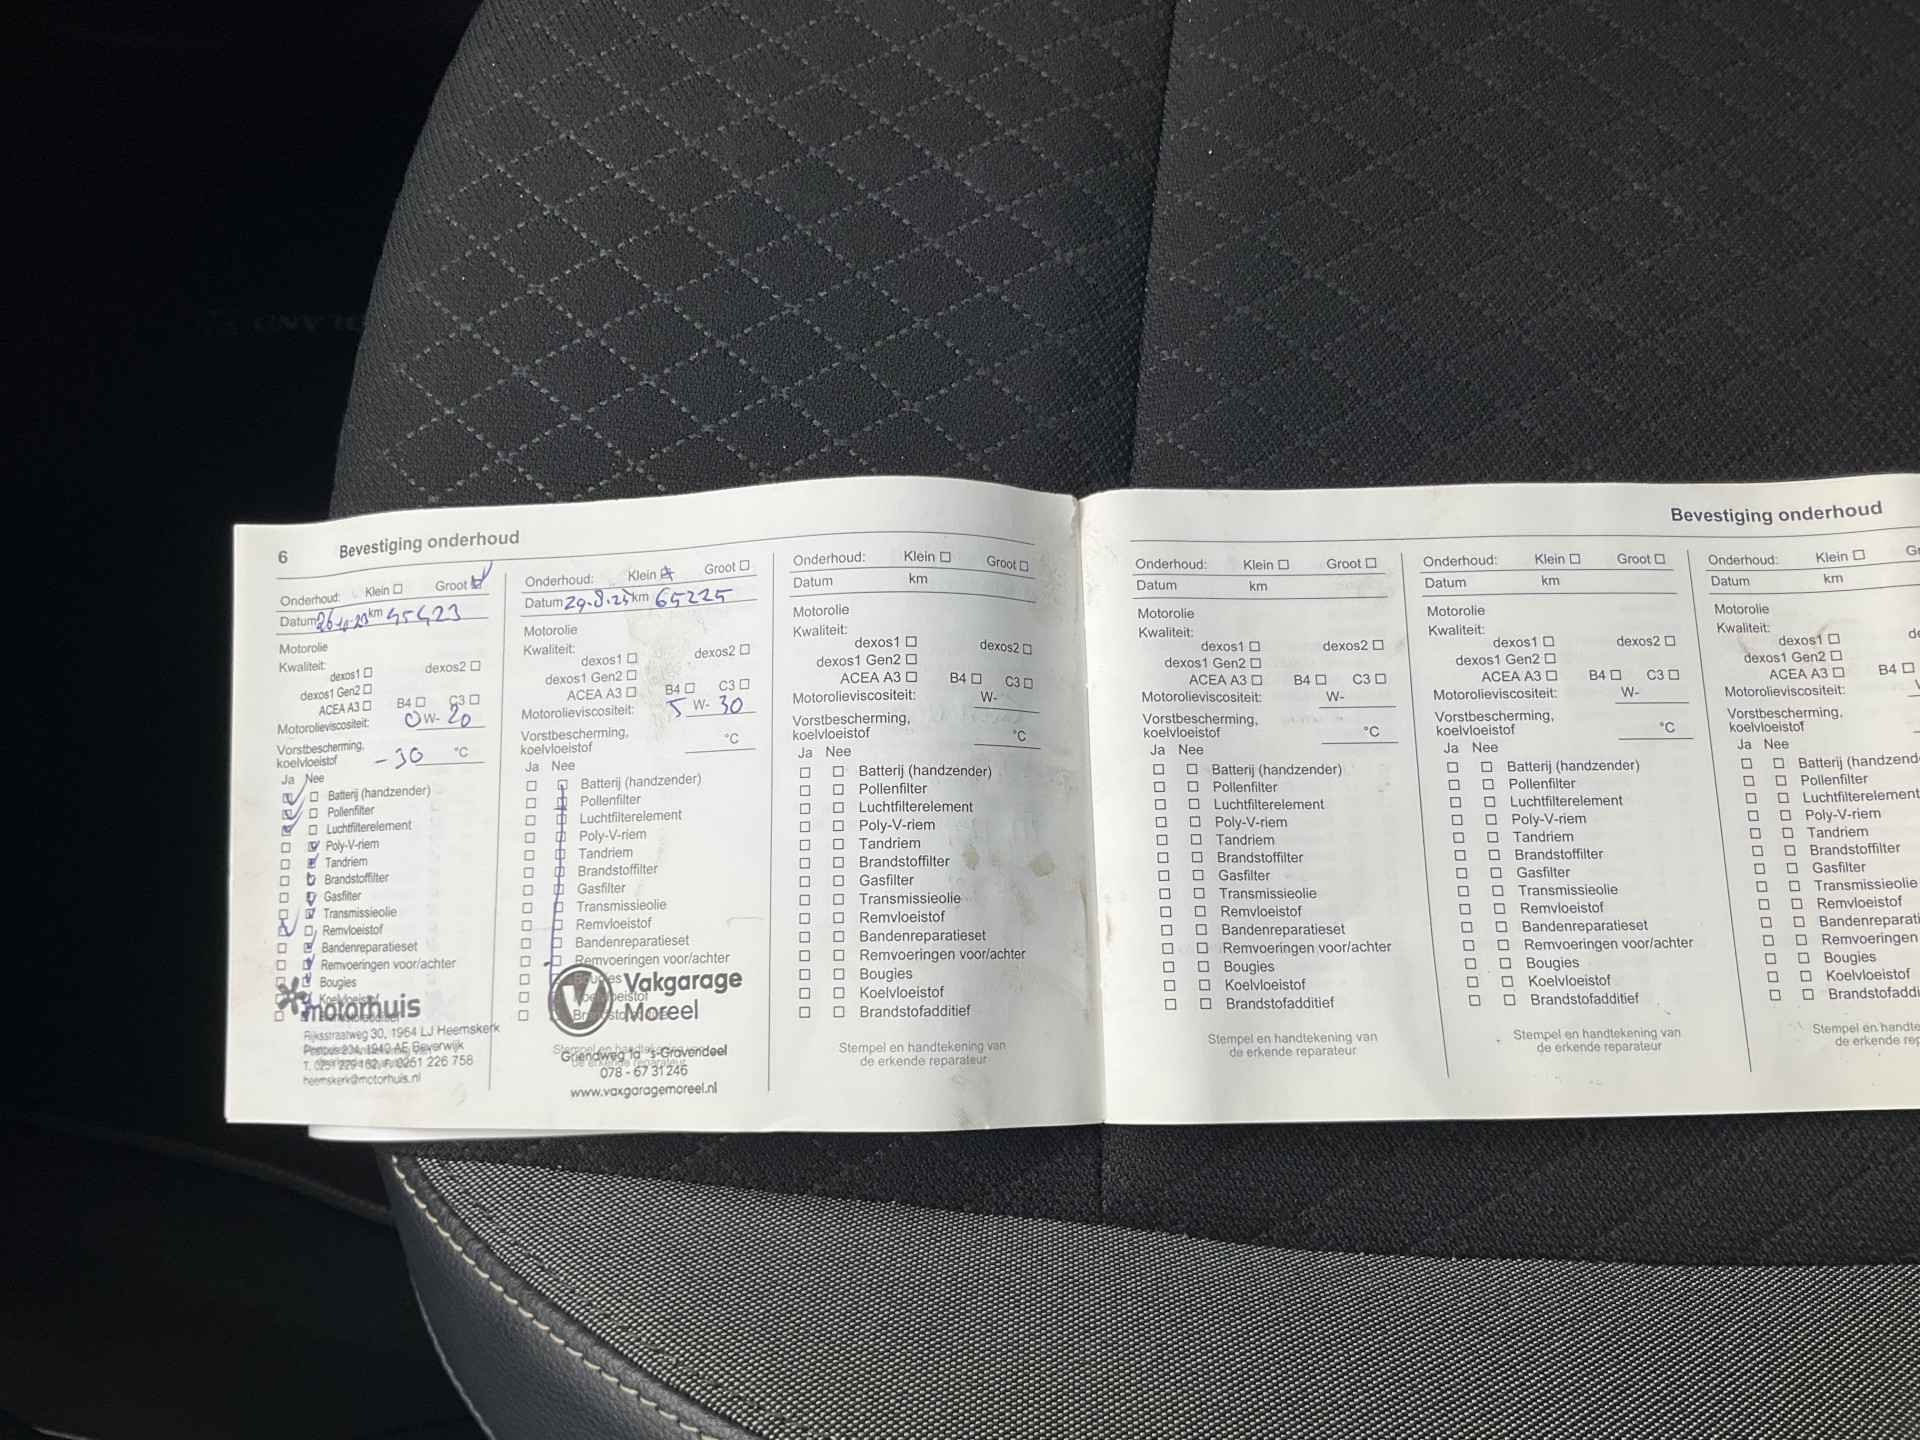 6 Bevestiging onderhoud
Onderhoud: Klein Groot
Datum km 45423
Motorolie
Kwaliteit:
dexos1 dexos2
dexos1 Gen2
ACEA A3 B4 C3
Motorolieviscositeit: 0 W- 20
Vorstbescherming,
koelvloeistof -30 °C
Ja Nee
Batterij (handzender)
Pollenfilter
Luchtfilterelement
Poly-V-riem
Tandriem
Brandstoffilter
Gasfilter
Transmissieolie
Remvloeistof
Bandenreparatieset
Remvoeringen voor/achter
Bougies
Koelvloeistof
motorhuis
Rijksstraatweg 30, 1964 LJ Heemskerk
Postbus 204, 1940 AE Beverwijk
T. 0251 229 162, F. 0251 226 758
heemskerk@motorhuis.nl
Onderhoud: Klein Groot
Datum 29.8.25 km 65225
Motorolie
Kwaliteit:
dexos1 dexos2
dexos1 Gen2
ACEA A3 B4 C3
Motorolieviscositeit: 5 W- 30
Vorstbescherming,
koelvloeistof °C
Ja Nee
Batterij (handzender)
Pollenfilter
Luchtfilterelement
Poly-V-riem
Tandriem
Brandstoffilter
Gasfilter
Transmissieolie
Remvloeistof
Bandenreparatieset
Remvoeringen voor/achter
Bougies
Koelvloeistof
Vakgarage
Moreel
Griendweg 1a 's-Gravendeel
078 - 67 31 246
www.vakgaragemoreel.nl
Onderhoud: Klein Groot
Datum km
Motorolie
Kwaliteit:
dexos1 dexos2
dexos1 Gen2
ACEA A3 B4 C3
Motorolieviscositeit: W-
Vorstbescherming,
koelvloeistof °C
Ja Nee
Batterij (handzender)
Pollenfilter
Luchtfilterelement
Poly-V-riem
Tandriem
Brandstoffilter
Gasfilter
Transmissieolie
Remvloeistof
Bandenreparatieset
Remvoeringen voor/achter
Bougies
Koelvloeistof
Brandstofadditief
Stempel en handtekening van
de erkende reparateur
Bevestiging onderhoud
Onderhoud: Klein Groot
Datum km
Motorolie
Kwaliteit:
dexos1 dexos2
dexos1 Gen2
ACEA A3 B4 C3
Motorolieviscositeit: W-
Vorstbescherming,
koelvloeistof °C
Ja Nee
Batterij (handzender)
Pollenfilter
Luchtfilterelement
Poly-V-riem
Tandriem
Brandstoffilter
Gasfilter
Transmissieolie
Remvloeistof
Bandenreparatieset
Remvoeringen voor/achter
Bougies
Koelvloeistof
Brandstofadditief
Stempel en handtekening van
de erkende reparateur
Onderhoud: Klein Groot
Datum km
Motorolie
Kwaliteit:
dexos1 dexos2
dexos1 Gen2
ACEA A3 B4 C3
Motorolieviscositeit: W-
Vorstbescherming,
koelvloeistof °C
Ja Nee
Batterij (handzender)
Pollenfilter
Luchtfilterelement
Poly-V-riem
Tandriem
Brandstoffilter
Gasfilter
Transmissieolie
Remvloeistof
Bandenreparatieset
Remvoeringen voor/achter
Bougies
Koelvloeistof
Brandstofadditief
Stempel en handtekening van
de erkende reparateur
Onderhoud: Klein
Datum km
Motorolie
Kwaliteit:
dexos1
dexos1 Gen2
ACEA A3 B4
Motorolieviscositeit:
Vorstbescherming,
koelvloeistof
Ja Nee
Batterij (handzend
Pollenfilter
Luchtfilterelement
Poly-V-riem
Tandriem
Brandstoffilter
Gasfilter
Transmissieolie
Remvloeistof
Bandenreparati
Remvoeringen
Bougies
Koelvloeistof
Brandstofaddi
Stempel en handte
de erkende rep